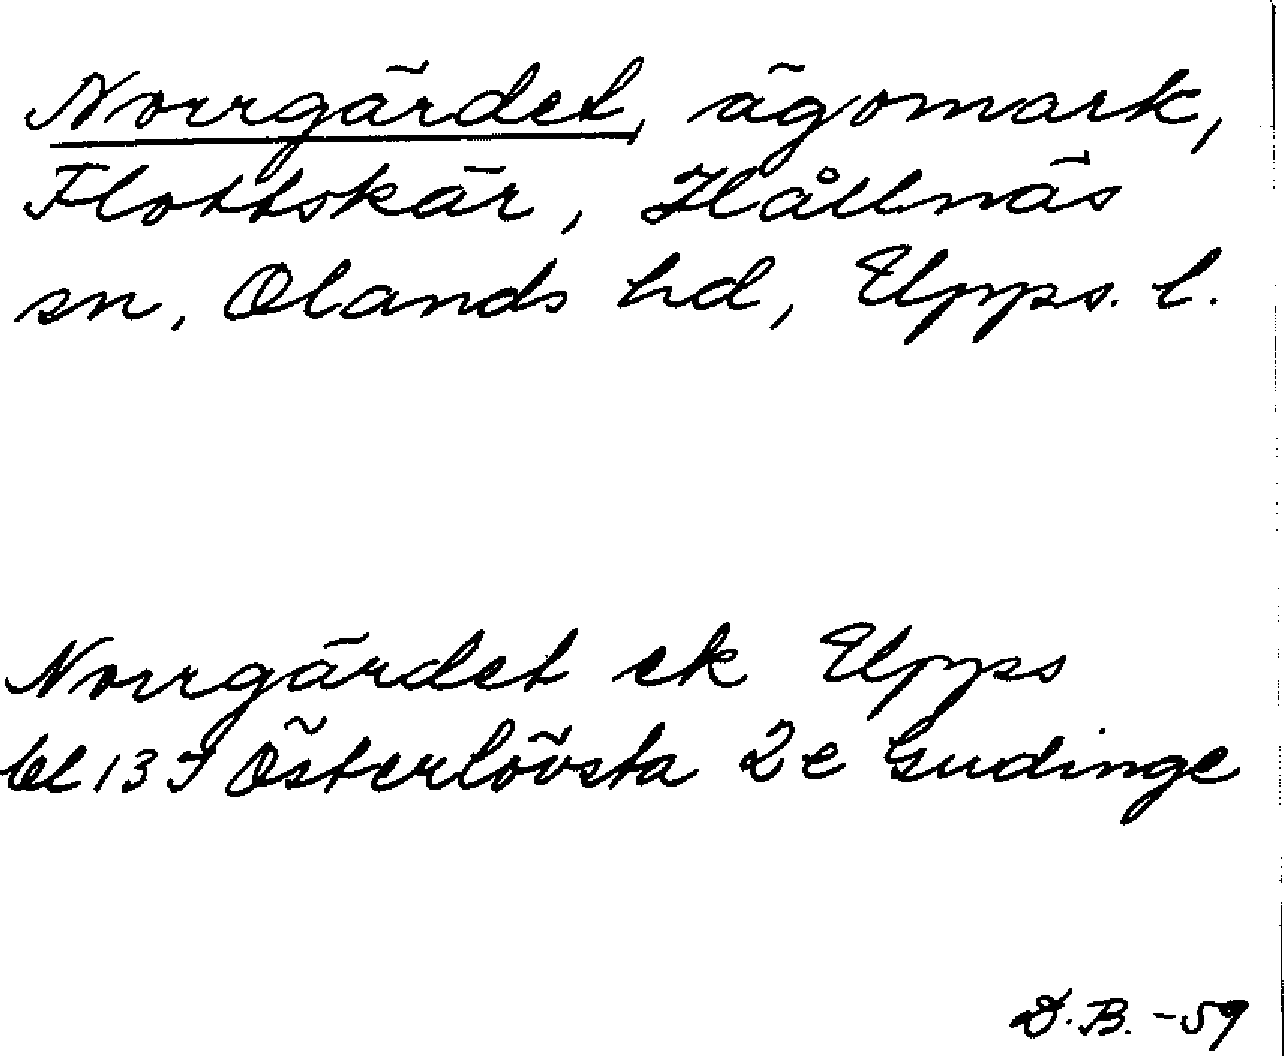 Norrgärdet, ägomark,
Flottskär, Hållnäs
sn, Olands hd, Upps. l.
Norrgärdet ek Upps
bl 13 I Österlövsta 2e Gudinge
D.B. -59